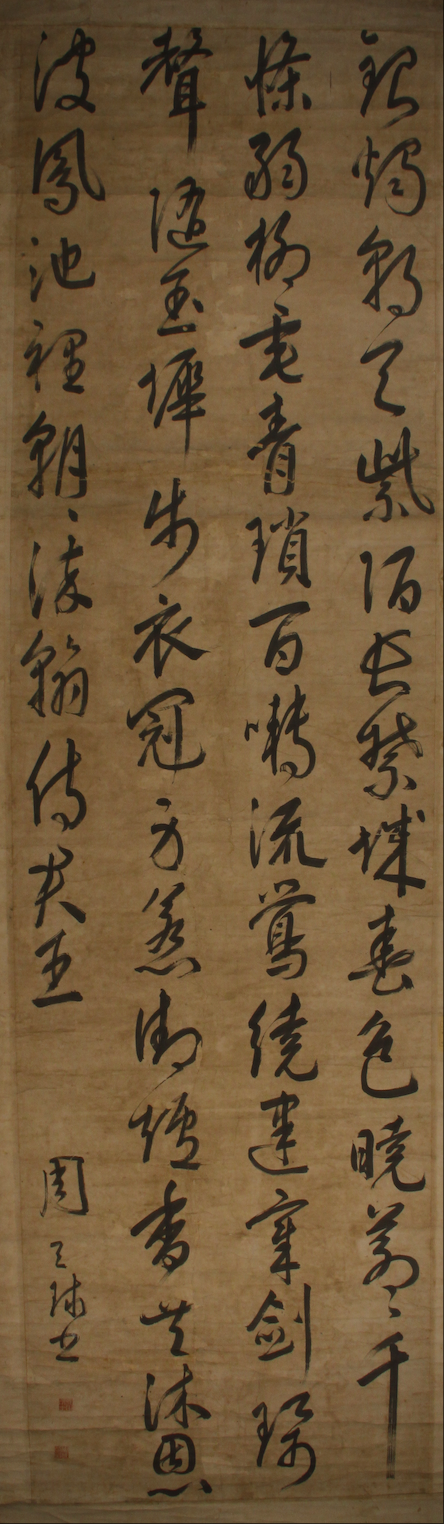 銀燭朝天紫陌長禁城春色曉蒼〻千
條弱柳垂青瑣百囀流鶯繞建章劍珮
聲隨玉墀步衣冠身惹御爐香共沐恩
波鳳池裡朝〻染翰侍君王
周天球書